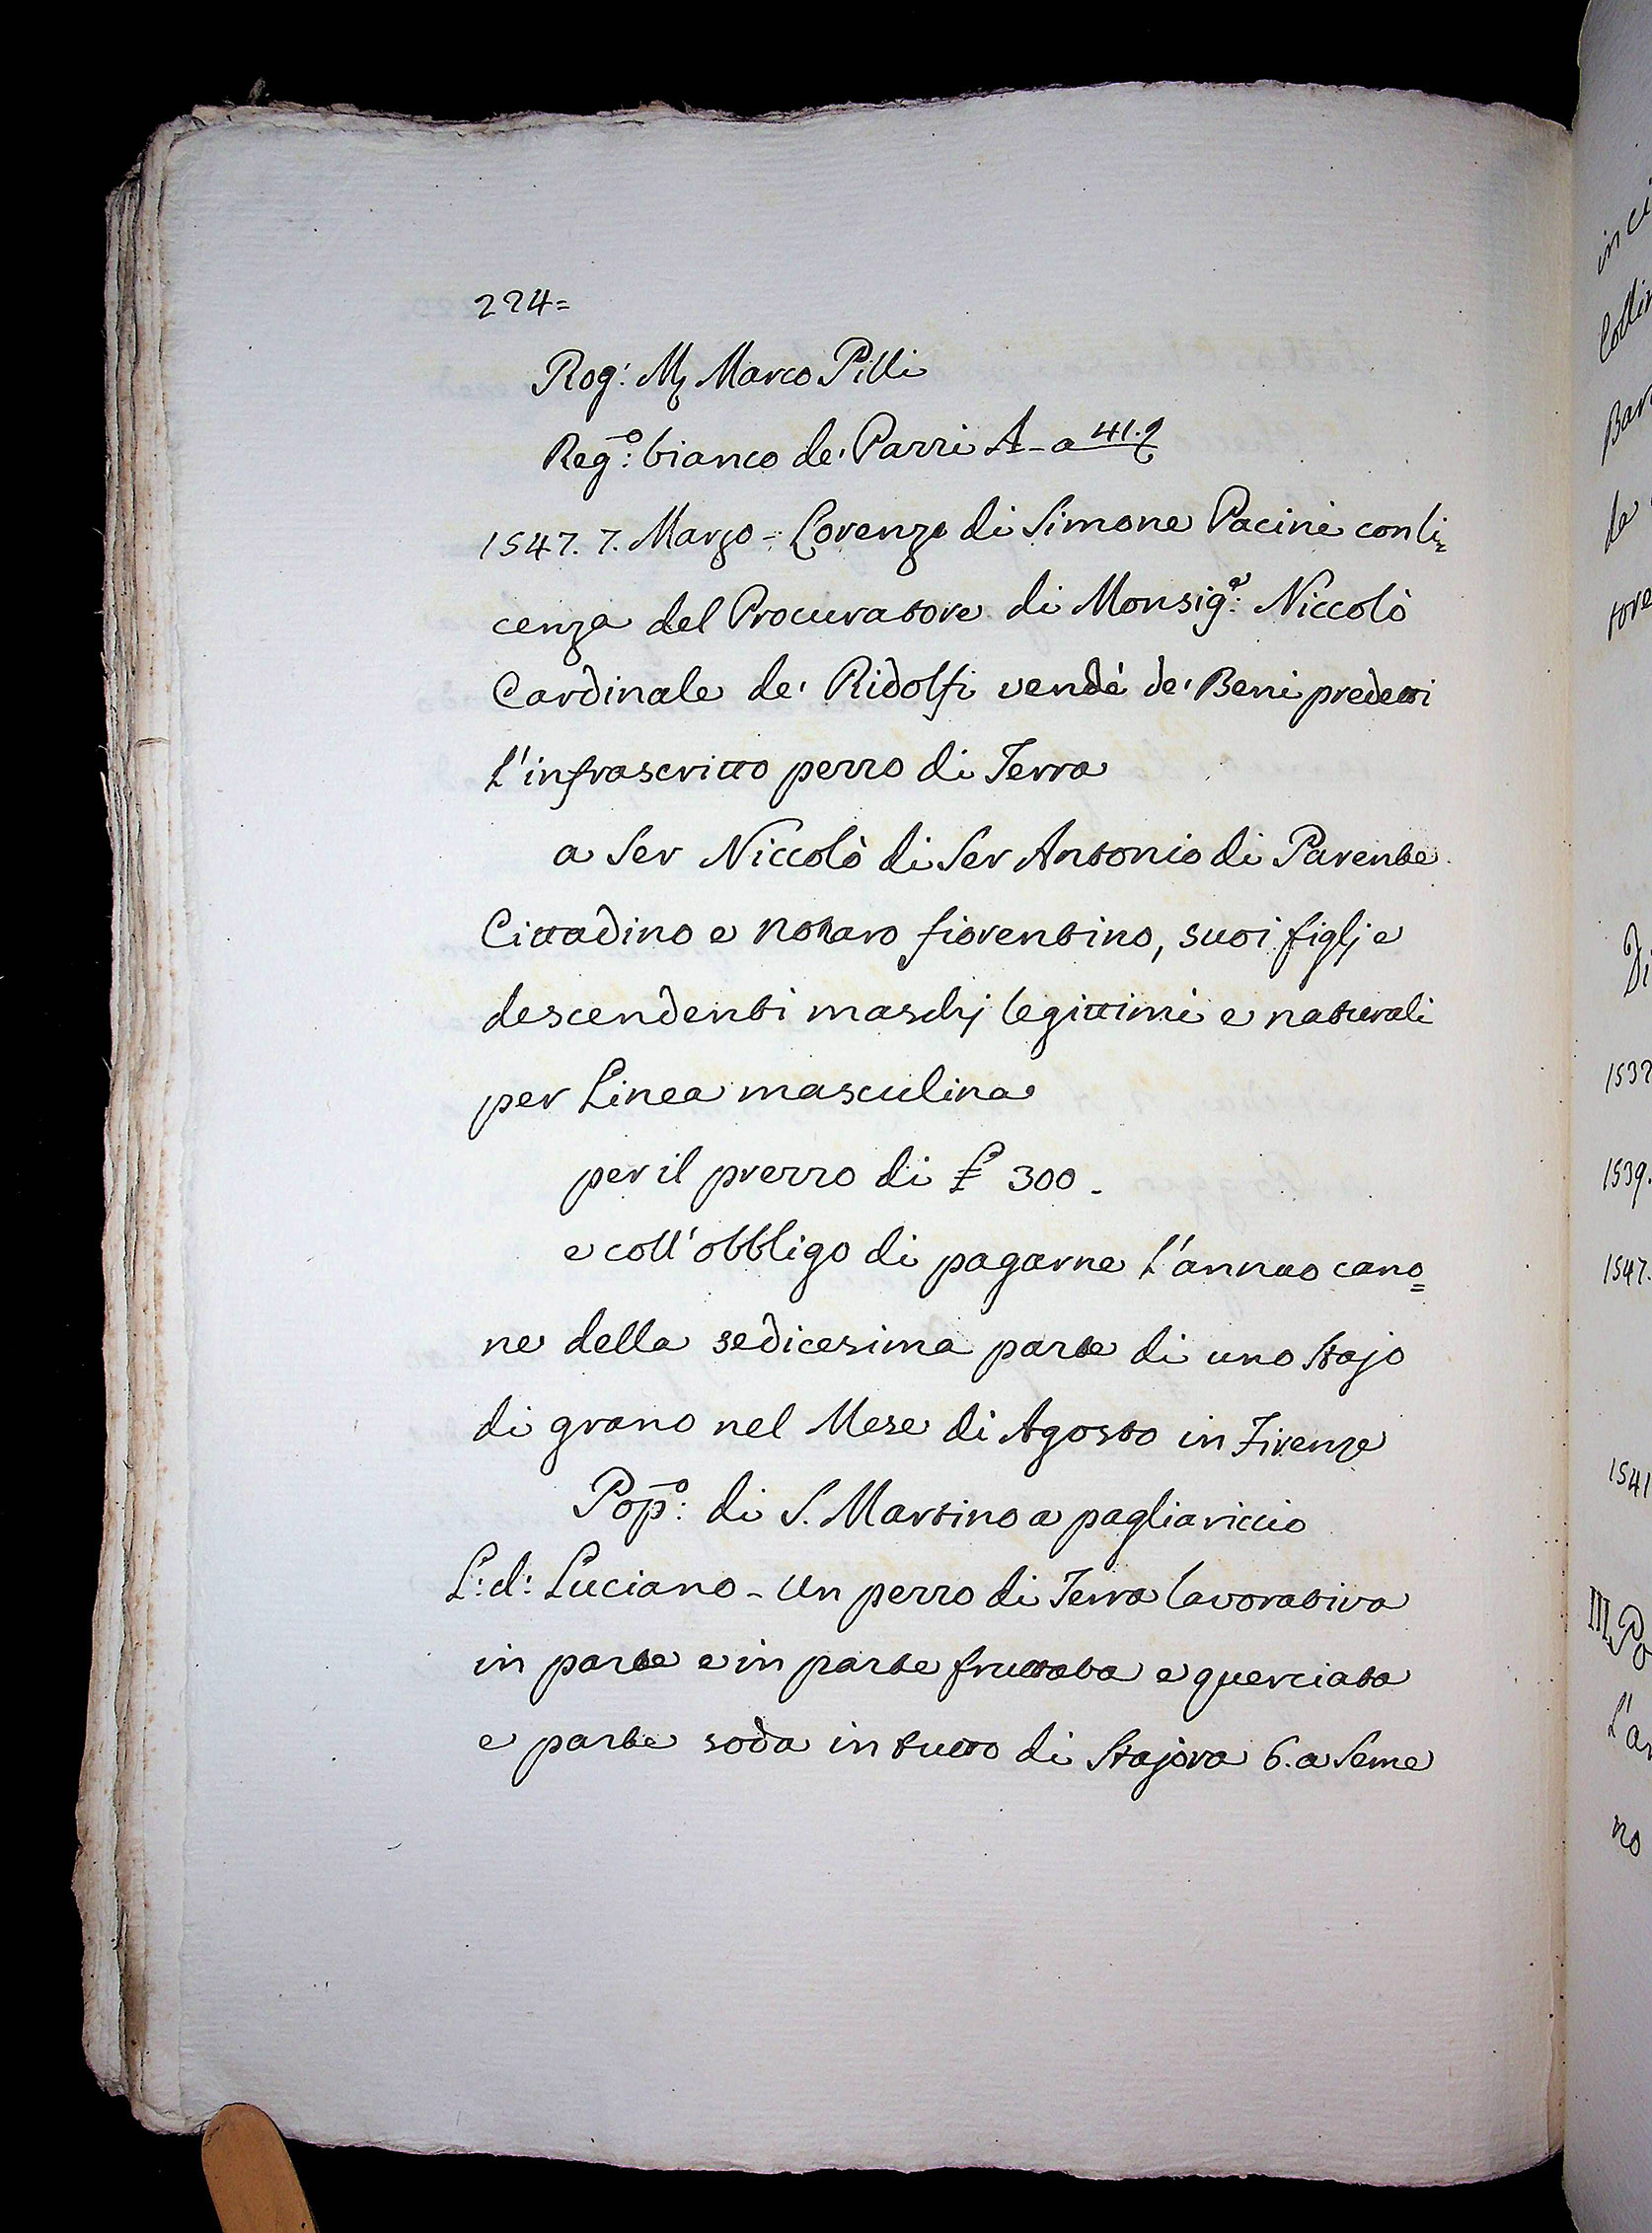 224=
Rog: M Marco Pilli
Reg.º: bianco de' Pazzi A - a 41.
1547. 7. Marzo = Lorenzo di Simone Pacini con li=
cenza del Procuratore di Monsig.r: Niccolò
Cardinale de' Ridolfi vendè de' Beni predetti
l'infrascritto pezzo di Terra
a Ser Niccolò di Ser Antonio di Parente
Cittadino e Notaro fiorentino, suoi figlj e
descendenti maschj legittimi e naturali
per Linea masculina
per il prezzo di £ 300.
e coll'obbligo di pagarne l'annuo cano=
ne della sedicesima parte di uno Stajo
di grano nel Mese di Agosto in Firenze
Pop.º: di S. Martino a pagliariccio
L: d: Luciano - Un pezzo di Terra lavorativa
in parte e in parte fruttata e querciata
e parte soda in tutto di Stajora 6. a Seme
in ci
de
tore
Di
1539.
1547.
1541
III Po
L'a
no